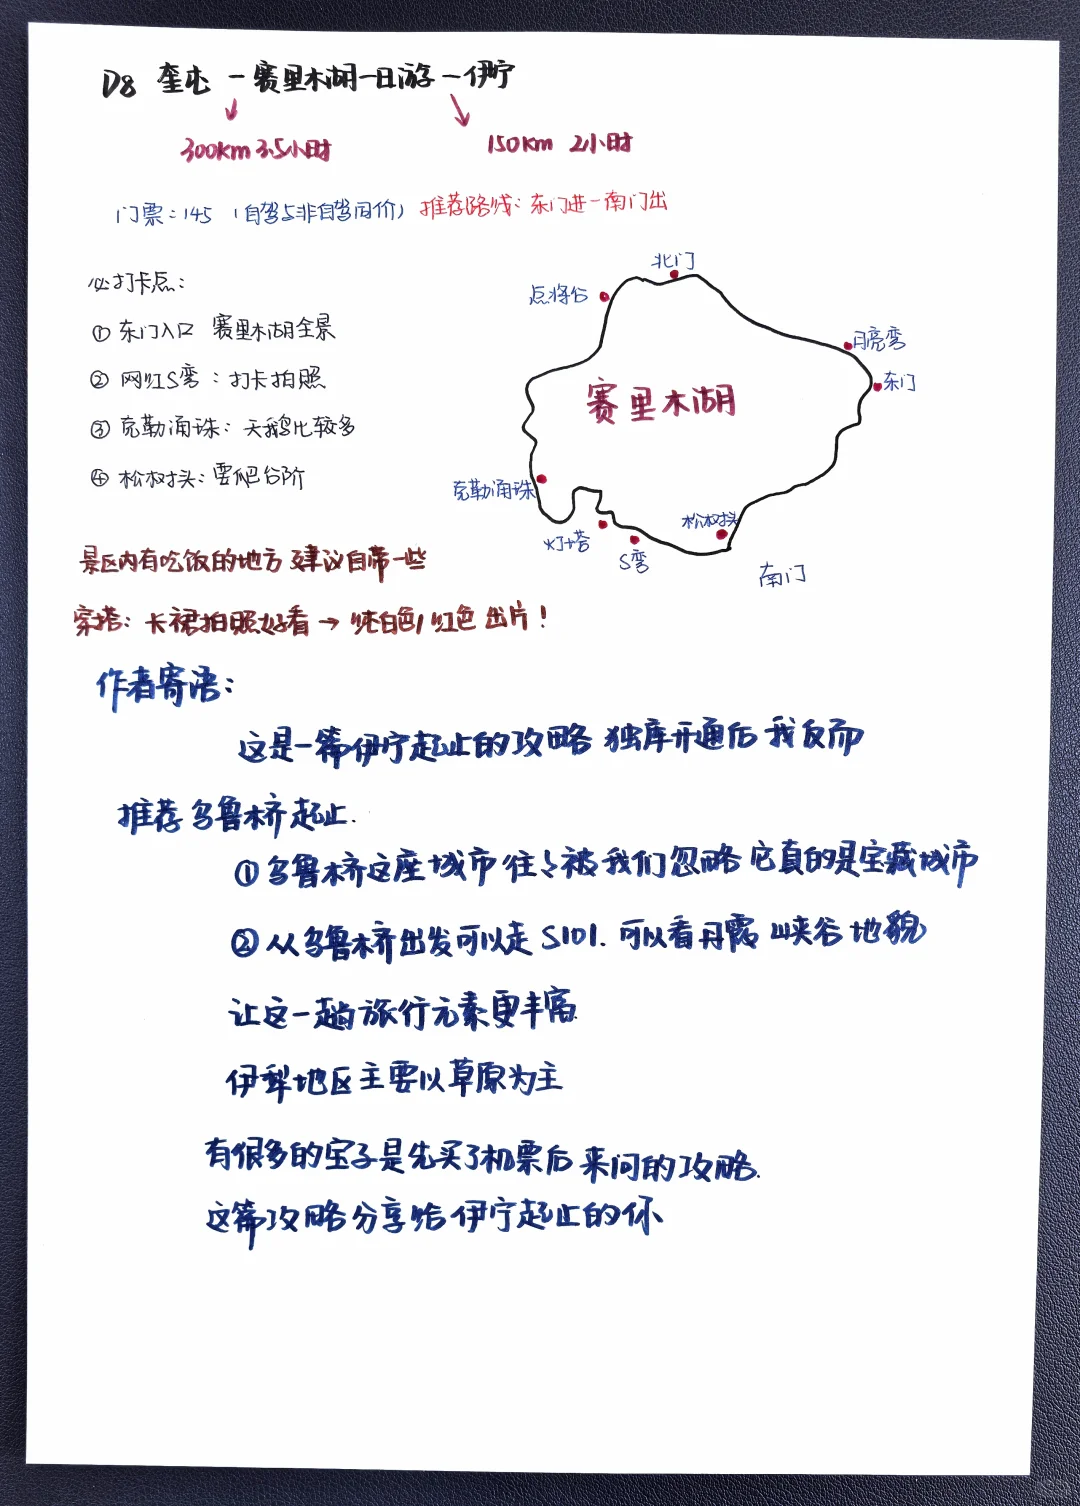 D8 奎屯 - 赛里木湖一日游 - 伊宁
300km 3.5小时
150km 2小时
门票:145 (自驾与非自驾同价) 推荐路线:东门进-南门出
必打卡点:
① 东门入口 赛里木湖全景
② 网红S弯:打卡拍照
③ 克勒涌珠:天鹅比较多
④ 松树头:要爬台阶
北门
点将台
月亮弯
东门
赛里木湖
克勒涌珠
灯塔
S弯
松树头
南门
景区内有吃饭的地方 建议自带一些
穿搭:长裙拍照好看→纯白色/红色 出片!
作者寄语:
这是一篇伊宁起止的攻略 独库开通后 我反而
推荐乌鲁木齐起止.
①乌鲁木齐这座城市往々被我们忽略 它真的是宝藏城市
②从乌鲁木齐出发可以走S101.可以看丹霞 峡谷地貌
让这一趟旅行元素更丰富.
伊犁地区主要以草原为主
有很多的宝子是先买了机票后 来问的攻略.
这篇攻略分享给伊宁起止的你